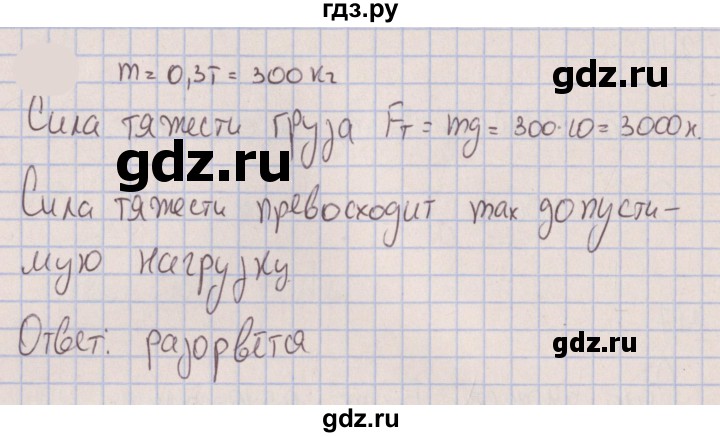 гдз.ру
m = 0,3т = 300 кг
gdz.ru
Сила тяжести груза Fт = mg = 300·10 = 3000н.
gdz.ru
Сила тяжести превосходит max допусти-
мую нагрузку
Ответ: разорвётся
gdz.ru
gdz.ru